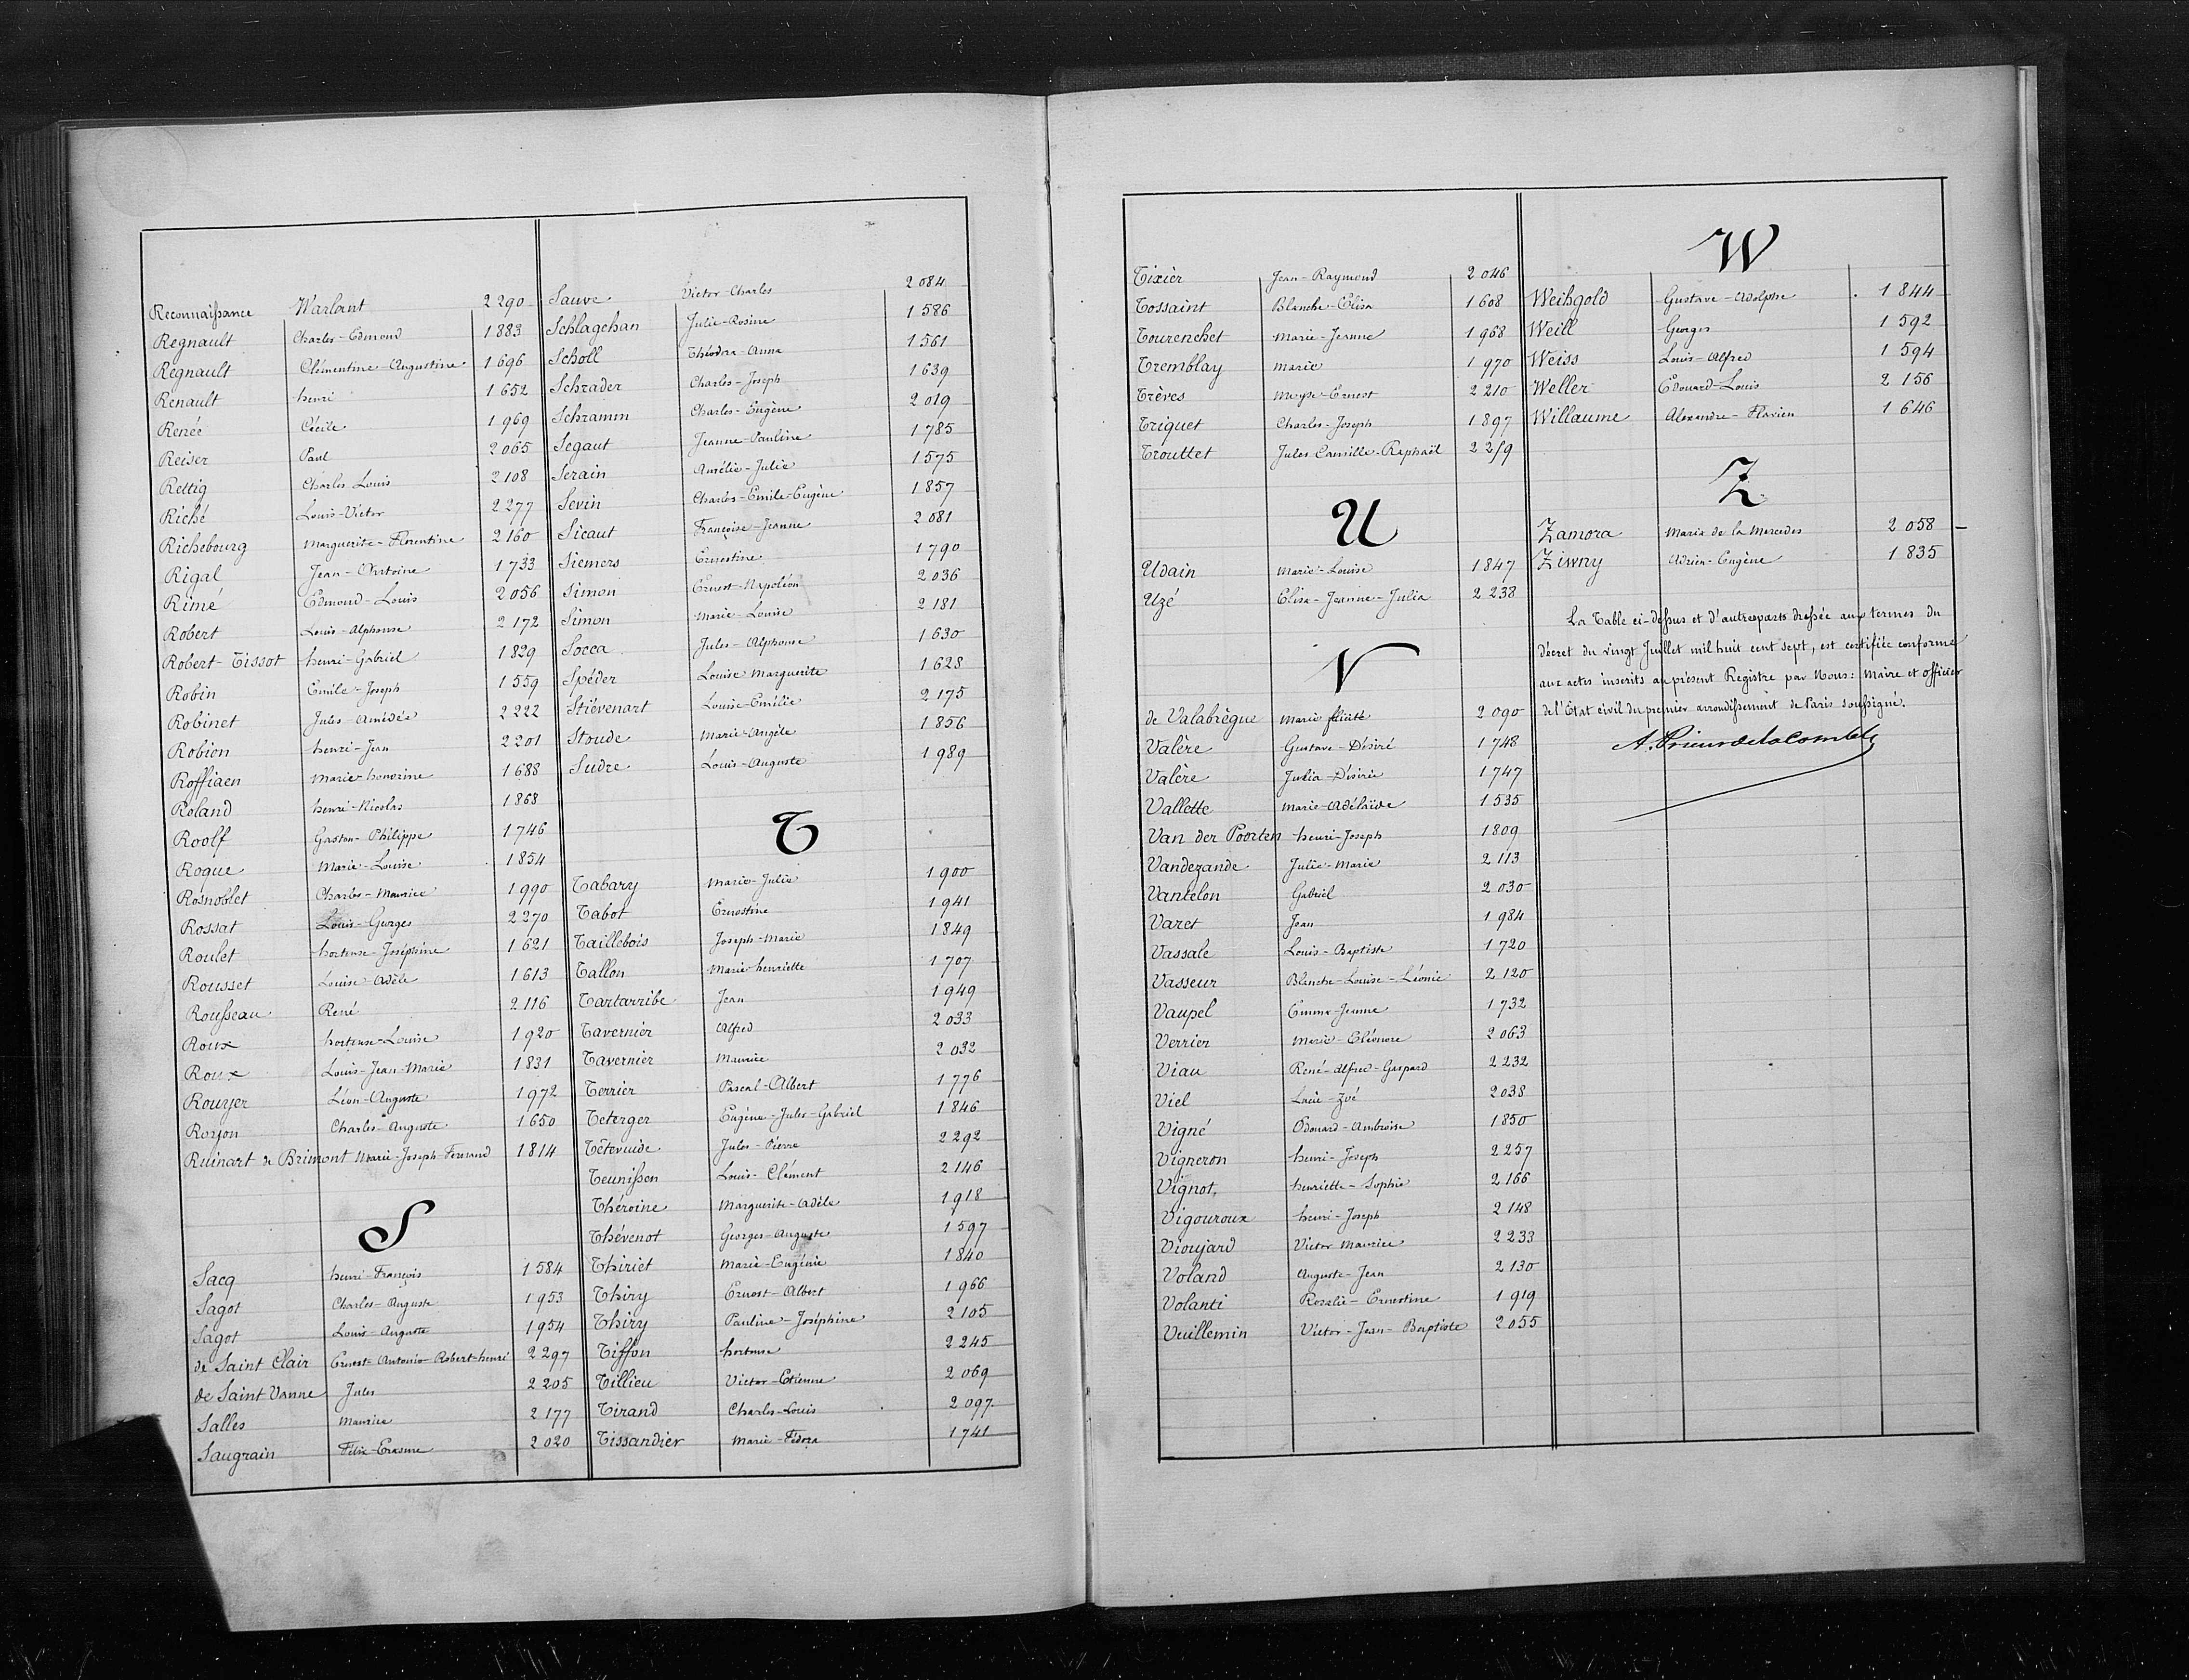 Reconnaissance Warlant 2290
Regnault Charles-Edmond 1883
Regnault Clémentine-Augustine 1696
Renault henri 1652
Renée Cécile 1969
Reiser Paul 2065
Rettig Charles Louis 2108
Riché Louis-Victor 2277
Richebourg Marguerite-Florentine 2160
Rigal Jean-Antoine 1733
Rimé Edmond-Louis 2056
Robert Louis-Alphonse 2172
Robert-Tissot henri-Gabriel 1829
Robin Emile-Joseph 1559
Robinet Jules-Amédée 2222
Robion henri-Jean 2201
Roffiaen Marie-honorine 1688
Roland henri-Nicolas 1868
Roolf Gaston-Philippe 1746
Roque Marie-Louise 1854
Rosnoblet Charles-Maurice 1990
Rossat Louis-Georges 2270
Roulet hortense-Joséphine 1621
Rousset Louise-Adèle 1613
Rousseau René 2116
Roux hortense-Louise 1920
Roux Louis-Jean-Marie 1831
Rouyer Léon-Auguste 1972
Royon Charles-Auguste 1650
Ruinart de Brimont Marie-Joseph-Fernand 1814
S
Sacq henri-François 1584
Sagot Charles-Auguste 1953
Sagot Louis-Auguste 1954
de Saint Clair Ernest-Antonio-Robert-henri 2297
de Saint Vanne Jules 2205
Salles Maurice 2177
Saugrain Félix-Erasme 2020
Sauve Victor-Charles 2084
Schlagchan Julie-Rosine 1586
Scholl Théodora-Anna 1561
Schrader Charles-Joseph 1639
Schramm Charles-Eugène 2019
Segaut Jeanne-Pauline 1785
Serain Aurélie-Julie 1575
Sevin Charles-Emile-Eugène 1857
Sicaut Françoise-Jeanne 2081
Siemers Ernestine 1790
Simon Ernest-Napoléon 2036
Simon Marie-Louise 2181
Socca Jules-Alphonse 1630
Spéder Louise Marguerite 1628
Stiévenart Louise-Emélie 2175
Stoude Marie-Angèle 1856
Sudre Louis-Auguste 1989
T
Tabary Marie-Julie 1900
Tabot Ernestine 1941
Taillebois Joseph-Marie 1849
Tallon Marie-henriette 1707
Tartarribe Jean 1949
Tavernier Alfred 2033
Tavernier Maurice 2032
Terrier Pascal-Albert 1776
Teterger Eugène-Jules-Gabriel 1846
Tétevuide Jules-Pierre 2292
Teunissen Louis-Clément 2146
Théroine Marguerite-Adèle 1918
Thévenot Georges-Auguste 1597
Thiriet Marie-Eugénie 1840
Thiry Ernest-Albert 1966
Thiry Pauline-Joséphine 2105
Tiffon hortense 2245
Tillieu Victor-Etienne 2069
Tirand Charles-Louis 2097
Tissandier Marie-Fédora 1741
Tixier Jean-Raymond 2046
Tossaint Blanche-Elisa 1608
Tourenchet Marie-Jeanne 1968
Tremblay Marie 1970
Trèves Moyse-Ernest 2210
Triquet Charles-Joseph 1897
Trouttet Jules-Camille-Raphaël 2259
U
Udain Marie-Louise 1847
Uzé Elisa-Jeanne-Julia 2238
V
de Valabrègue Marie félicité 2090
Valère Gustave-Désiré 1748
Valère Julia-Désirée 1747
Vallette Marie-Adélaïde 1535
Van der Poorten henri-Joseph 1809
Vandezande Julie-Marie 2113
Vantelon Gabriel 2030
Varet Jean 1984
Vassale Louis-Baptiste 1720
Vasseur Blanche-Louise-Léonie 2120
Vaupel Emma-Jeanne 1732
Verrier Marie-Eléonore 2063
Viau René-Alfred-Gaspard 2232
Viel Lucie-Zoé 2038
Vigné Edouard-Ambroise 1850
Vigneron henri-Joseph 2257
Vignot, henriette-Sophie 2166
Vigouroux henri-Joseph 2148
Vioujard Victor Maurice 2233
Voland Auguste-Jean 2130
Volanti Rosalie-Ernestine 1919
Vuillemin Victor-Jean-Baptiste 2055
W
Weihgold Gustave-Adolphe 1844
Weill Georges 1592
Weiss Louis-Alfred 1594
Weller Edouard-Louis 2156
Willaume Alexandre-Flavien 1646
Z
Zamora Maria de la Mercedes 2058
Ziwny Adrien-Eugène 1835
La Table ci-dessus et d'autresparts dressée aux termes du
décret du vingt Juillet mil huit cent sept, est certifiée conforme
aux actes inscrits au présent Registre par Nous: Maire et officier
de l'Etat civil du premier arrondissement de Paris soussigné.
A. Prieur de la Comble